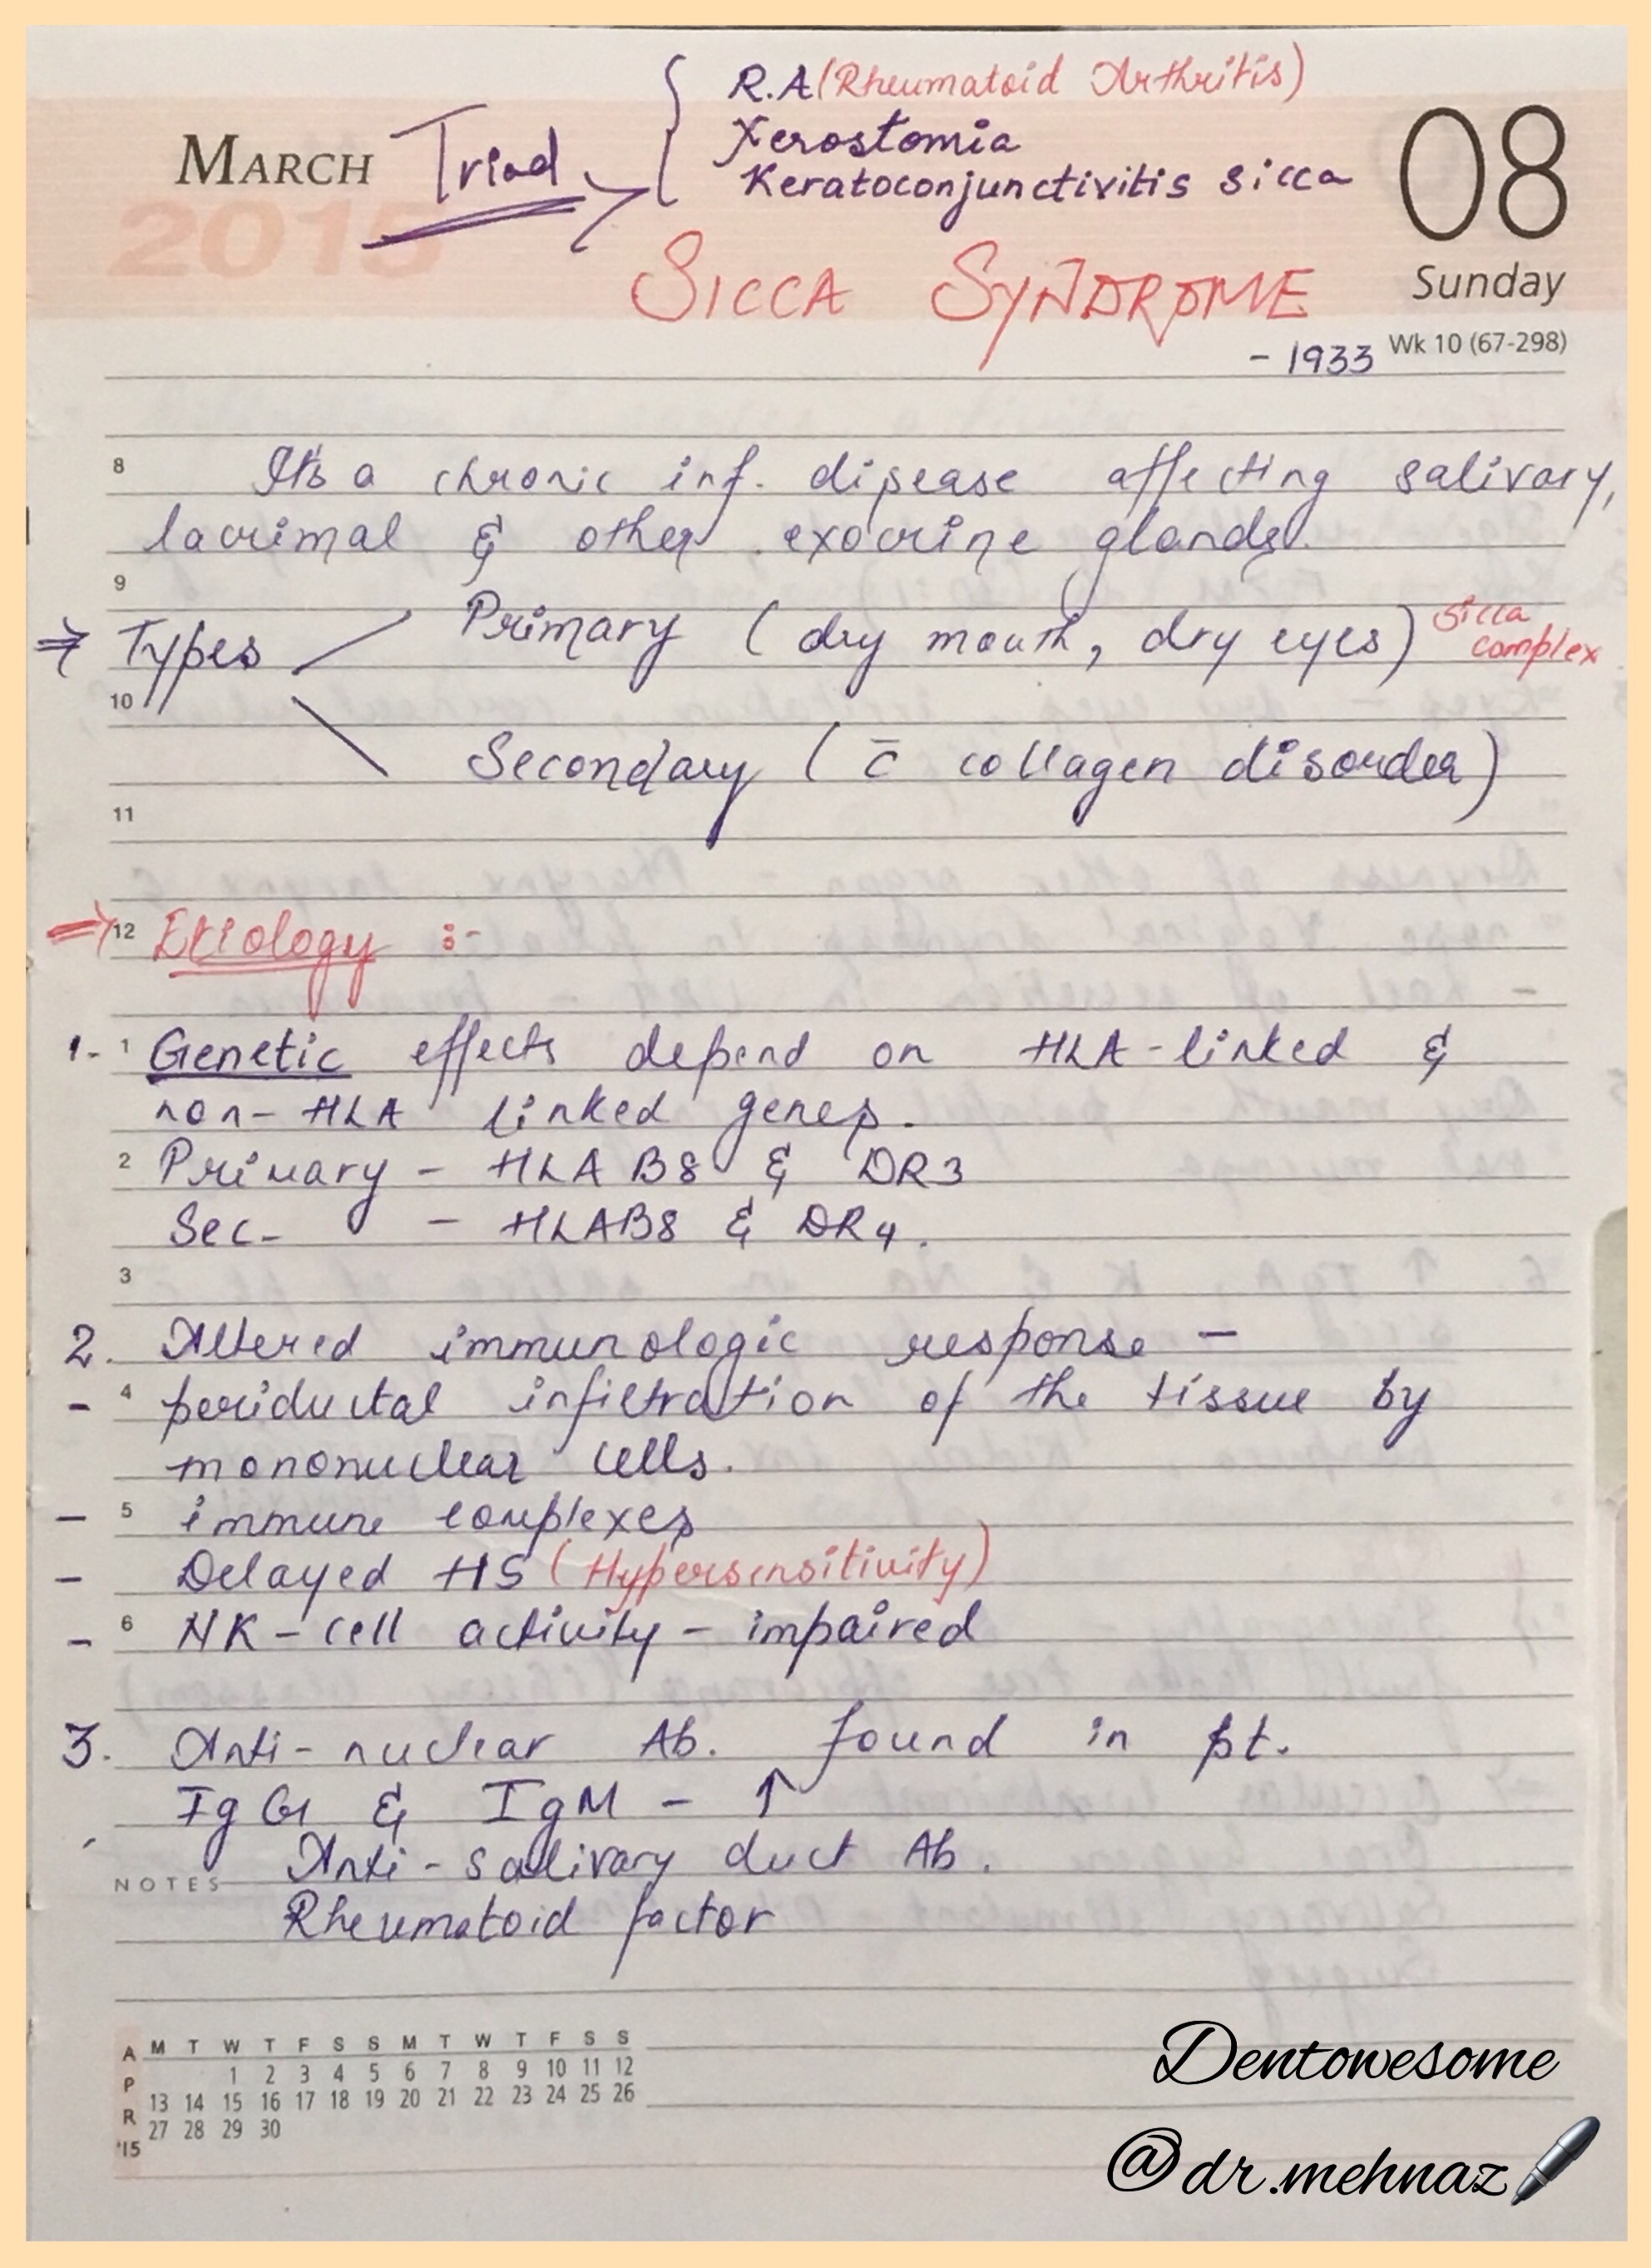 R.A (Rheumatoid Arthritis)
Xerostomia
Keratoconjunctivitis sicca
MARCH Triad
2015
08
Sunday
SICCA SYNDROME
- 1933 Wk 10 (67-298)
8 It's a chronic inf. disease affecting salivary,
lacrimal & other exocrine glands.
9
⇒ Types Primary (dry mouth, dry eyes) Sicca complex
10
Secondary (c̄ collagen disorder)
11
⇒ 12 Etiology :-
1. 1 Genetic effects depend on HLA-linked &
non-HLA linked genes.
2 Primary - HLA B8 & DR3
Sec. - HLAB8 & DR4.
3
2. Altered immunologic response -
- 4 periductal infiltration of the tissue by
mononuclear cells.
- 5 immune complexes
- Delayed HS (Hypersensitivity)
- 6 NK-cell activity - impaired
3. Anti-nuclear Ab. found in pt.
IgG & IgM - ↑
Anti-salivary duct Ab.
NOTES
Rheumatoid factor
APR '15
M T W T F S S M T W T F S S
1 2 3 4 5 6 7 8 9 10 11 12
13 14 15 16 17 18 19 20 21 22 23 24 25 26
27 28 29 30
Dentowesome
@dr.mehnaz